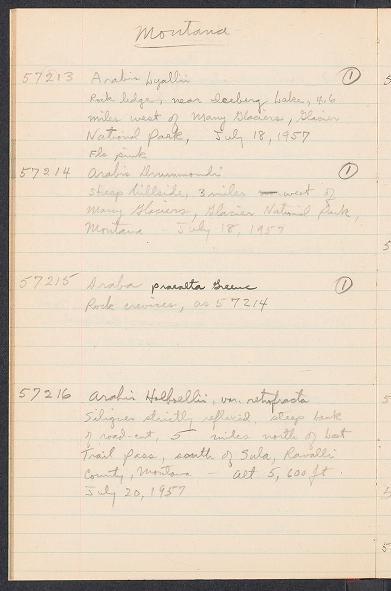 Montana
57213 Arabis Lyallii ①
Rock ledge, near Iceberg Lake, 4.6
miles west of Many Glaciers, Glacier
National Park, July 18, 1957
Fls pink
57214 Arabis Drummondii ①
steep hillside, 3 miles west of
Many Glaciers, Glacier National Park,
Montana - July 18, 1957
57215 Draba praealta Greene ①
Rock crevices, as 57214
57216 Arabis Holboellii, var. retrofracta
Siliques strictly reflexed, steep bank
of road-cut, 5 miles north of Lost
Trail Pass, south of Sula, Ravalli
County, Montana - alt 5,600 ft.
July 20, 1957